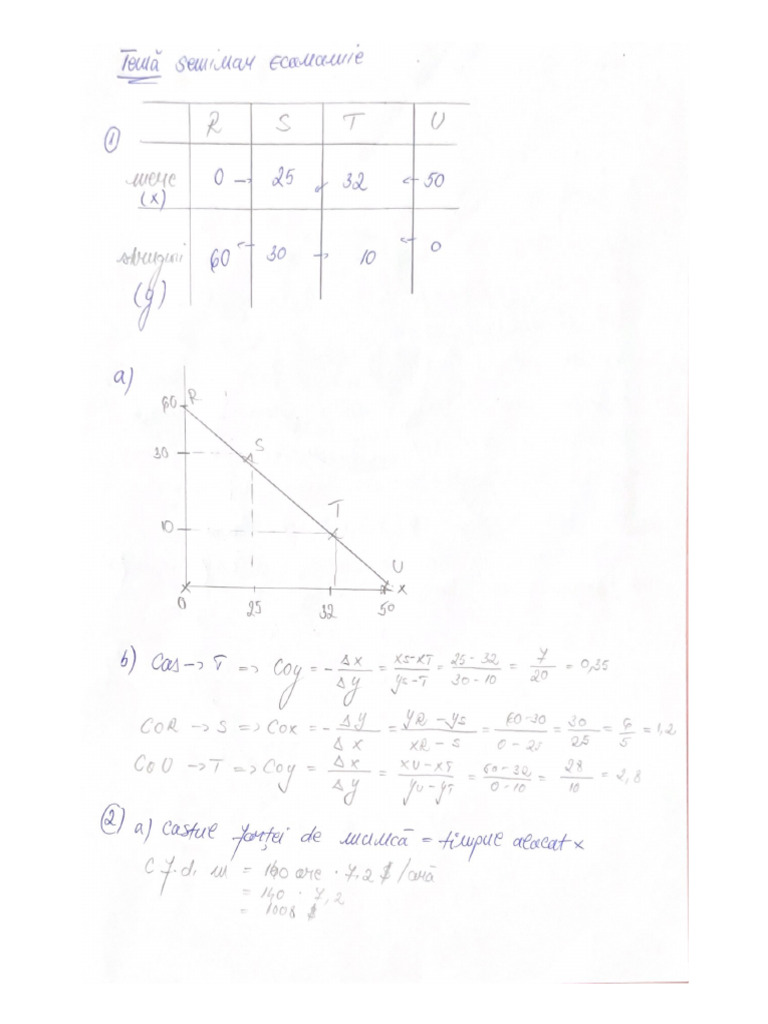 Temă seminar economie
R S T U
①
mere 0 → 25 32 ← 50
(x)
struguri 60 ← 30 → 10 ← 0
(y)
a)
60 R
S
30
T
10
U
x
0 25 32 50
b) Cos → T => Coy = - Δx/Δy = xs-xT/ys-T = 25-32/30-10 = 7/20 = 0,35
COR → S => Cox = - Δy/Δx = yR-ys/xR-s = 60-30/0-25 = 30/25 = 6/5 = 1,2
COU → T => Coy = Δx/Δy = xU-xT/yU-yT = 60-32/0-10 = 28/10 = 2,8
② a) Costul forței de muncă = timpul alocat x
C f. d. m = 140 ore · 7,2 $/oră
= 140 · 7,2
= 1008 $